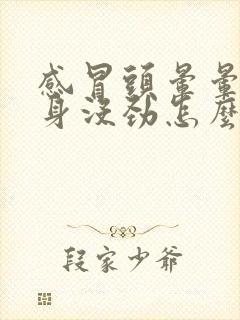 感冒頭暈暈
身沒勁怎麼
段家少爺